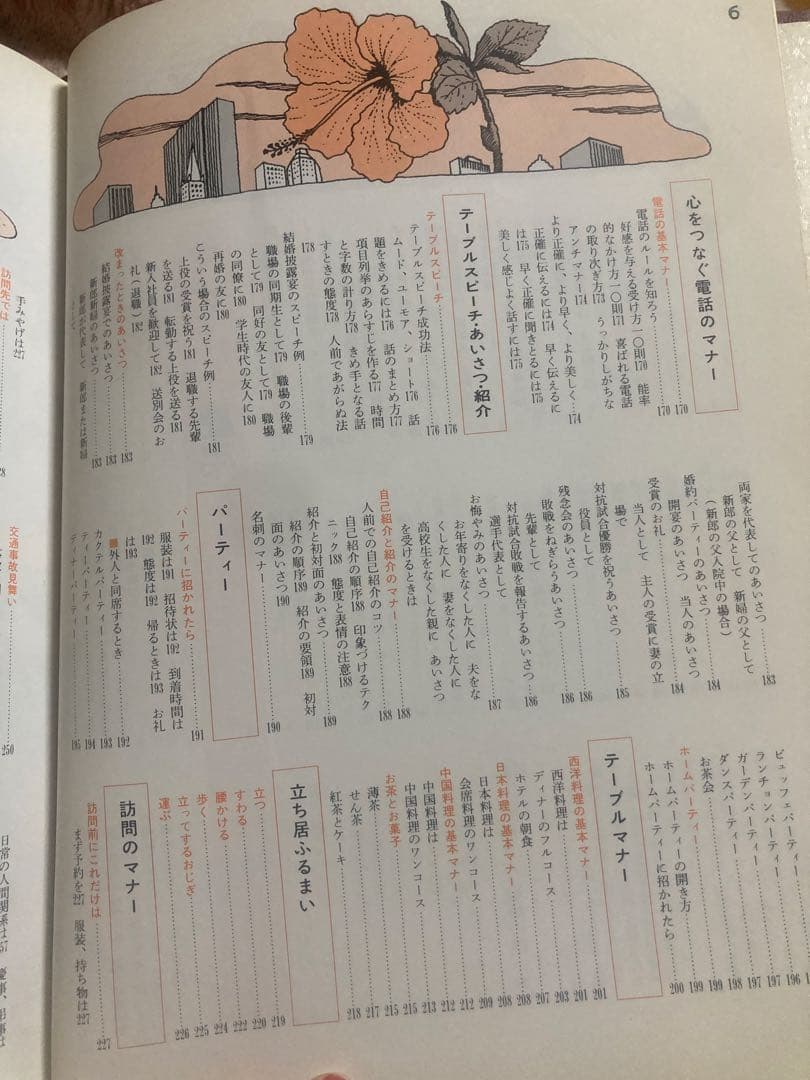 6
心をつなぐ電話のマナー
電話の基本マナー……170
電話のルールを知ろう……170
好感を与える受け方一〇則170 能率
的なかけ方一〇則171 喜ばれる電話
の取り次ぎ方173 うっかりしがちな
アンチマナー174
より正確に、より早く、より美しく…174
正確に伝えるには174 早く伝えるに
は175 早く正確に聞きとるには175
美しく感じよく話すには175
テーブルスピーチ・あいさつ・紹介
テーブルスピーチ……176
テーブルスピーチ成功法……176
ムード、ユーモア、ショート176 話
題をきめるには176 話のまとめ方177
項目列挙のあらすじを作る177 時間
と字数の計り方178 きめ手となる話
すときの態度178 人前であがらぬ法
178
結婚披露宴のスピーチ例……179
職場の同期生として179 職場の後輩
として179 同好の友として179 職場
の同僚に180 学生時代の友人に180
再婚の友に180
こういう場合のスピーチ例……181
上役の受賞を祝う181 退職する先輩
を送る181 転勤する上役を送る181
新入社員を歓迎して182 送別会のお
礼(退職)182
改まったときのあいさつ……183
結婚披露宴でのあいさつ……183
新郎新婦のあいさつ……183
新郎が代表して 新郎または新婦
として
両家を代表してのあいさつ……183
新郎の父として 新婦の父として
(新郎の父入院中の場合)
婚約パーティーのあいさつ……184
開宴のあいさつ 当人のあいさつ
受賞のお礼……184
当人として 主人の受賞に妻の立
場で
対抗試合優勝を祝うあいさつ……185
役員として
残念会のあいさつ……186
敗戦をねぎらうあいさつ……186
先輩として
対抗試合敗戦を報告するあいさつ…186
選手代表として
お悔やみのあいさつ……187
お年寄りをなくした人に 夫をな
くした人に 妻をなくした人に
高校生をなくした親に あいさつ
を受けるときは
自己紹介と紹介のマナー……188
人前での自己紹介のコツ……188
自己紹介の順序188 印象づけるテク
ニック188 態度と表情の注意188
紹介と初対面のあいさつ……189
紹介の順序189 紹介の要領189 初対
面のあいさつ190
名刺のマナー……190
パーティー
パーティーに招かれたら……191
服装は191 招待状は192 到着時間は
192 態度は192 帰るときは193 お礼
は193
外人と同席するとき……192
カクテルパーティー……193
ティーパーティー……194
ディナーパーティー……195
ビュッフェパーティー……196
ランチョンパーティー……197
ガーデンパーティー……197
ダンスパーティー……198
お茶会……199
ホームパーティー……199
ホームパーティーの開き方……199
ホームパーティーに招かれたら……200
テーブルマナー
西洋料理の基本マナー……201
西洋料理は……201
ディナーのフルコース……203
ホテルの朝食……207
日本料理の基本マナー……208
日本料理は……208
会席料理のワンコース……209
中国料理の基本マナー……212
中国料理は……212
中国料理のワンコース……215
お茶とお菓子……215
薄茶……215
せん茶……217
紅茶とケーキ……218
立ち居ふるまい
立つ……219
すわる……220
腰かける……222
歩く……224
立ってするおじぎ……225
運ぶ……226
訪問のマナー
訪問前にこれだけは……227
まず予約を227 服装、持ち物は227
手みやげは227
訪問先では
交通事故見舞い……250
日常の人間関係は